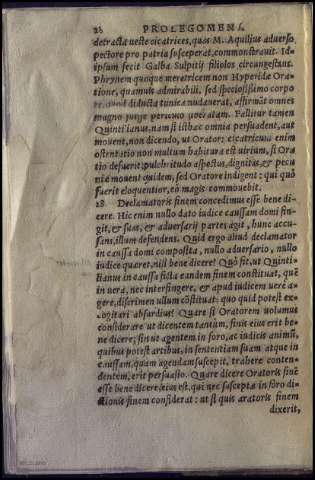 26 PROLEGOMENA.
detracta veste cicatrices, quas M. Aquilius adverso
pectore pro patria susceperat, commonstravit. Id-
ipsum fecit Galba Sulpitij filiolos circungestans.
Phrynem quoque meretricem non Hyperidæ Ora-
tione, quamvis admirabili, sed speciosissimo corpo
re, quod diducta tunica nudaverat, affirmāt omnes
magno periculo Fallitur tamen
Quintilianus, nam si istæc omnia persuadent, aut
movent, non dicendo, ut Orator: cicatricum enim
ostentatio non multum habitura est virium, si Ora
tio defuerit: pulchritudo aspectus, dignitas, & pecu
niæ movent quidem, sed Oratore indigent: qui quò
fuerit eloquentior, eò magis commovebit.
28. Declamatoris finem concedimus esse bene di-
cere. Hic enim nullo dato iudice caussam domi fin-
git, & suas, & adversarij partes agit, hunc accu-
sans, illum defendens. Quid ergo aliud declamator
in caussa domi composita, nullo adversario, nullo
iudice quæret, nisi bene dicere? Quò fit, ut Quinti-
lianus in caussa ficta eandem finem constituat, quē
in vera, nec interfingere, & apud iudicem veræ a-
gere, discrimen ullum cōstituat: quo quid potest ex-
cogitari absurdius? Quare si Oratorem volumus
considerare ut dicentem tantum, finis eius erit be-
ne dicere; sin ut agentem in foro, ac iudicis animū,
quibus potest artibus, in sententiam suam atque in
caussam, quam agendam suscepit, trahere conten-
dentem, erit persuasio. Quare dicere Oratoris finē
esse bene dicere, eius est, qui nec susceptæ in foro di-
ctionis finem considerat: ut si quis aratoris finem
dixerit,